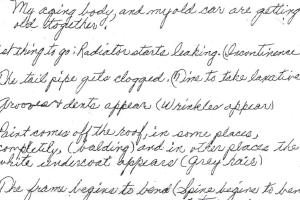 My aging body, and my old car are getting
old together.
1st thing to go: Radiator starts leaking. (Incontinence
The tail pipe gets clogged. (Time to take laxative
Grooves & dents appear (Wrinkles appear)
Paint comes off the roof, in some places,
completely, (balding) and in other places the
white undercoat appears (Grey hair)
The frame begins to bend (Spine begins to ben